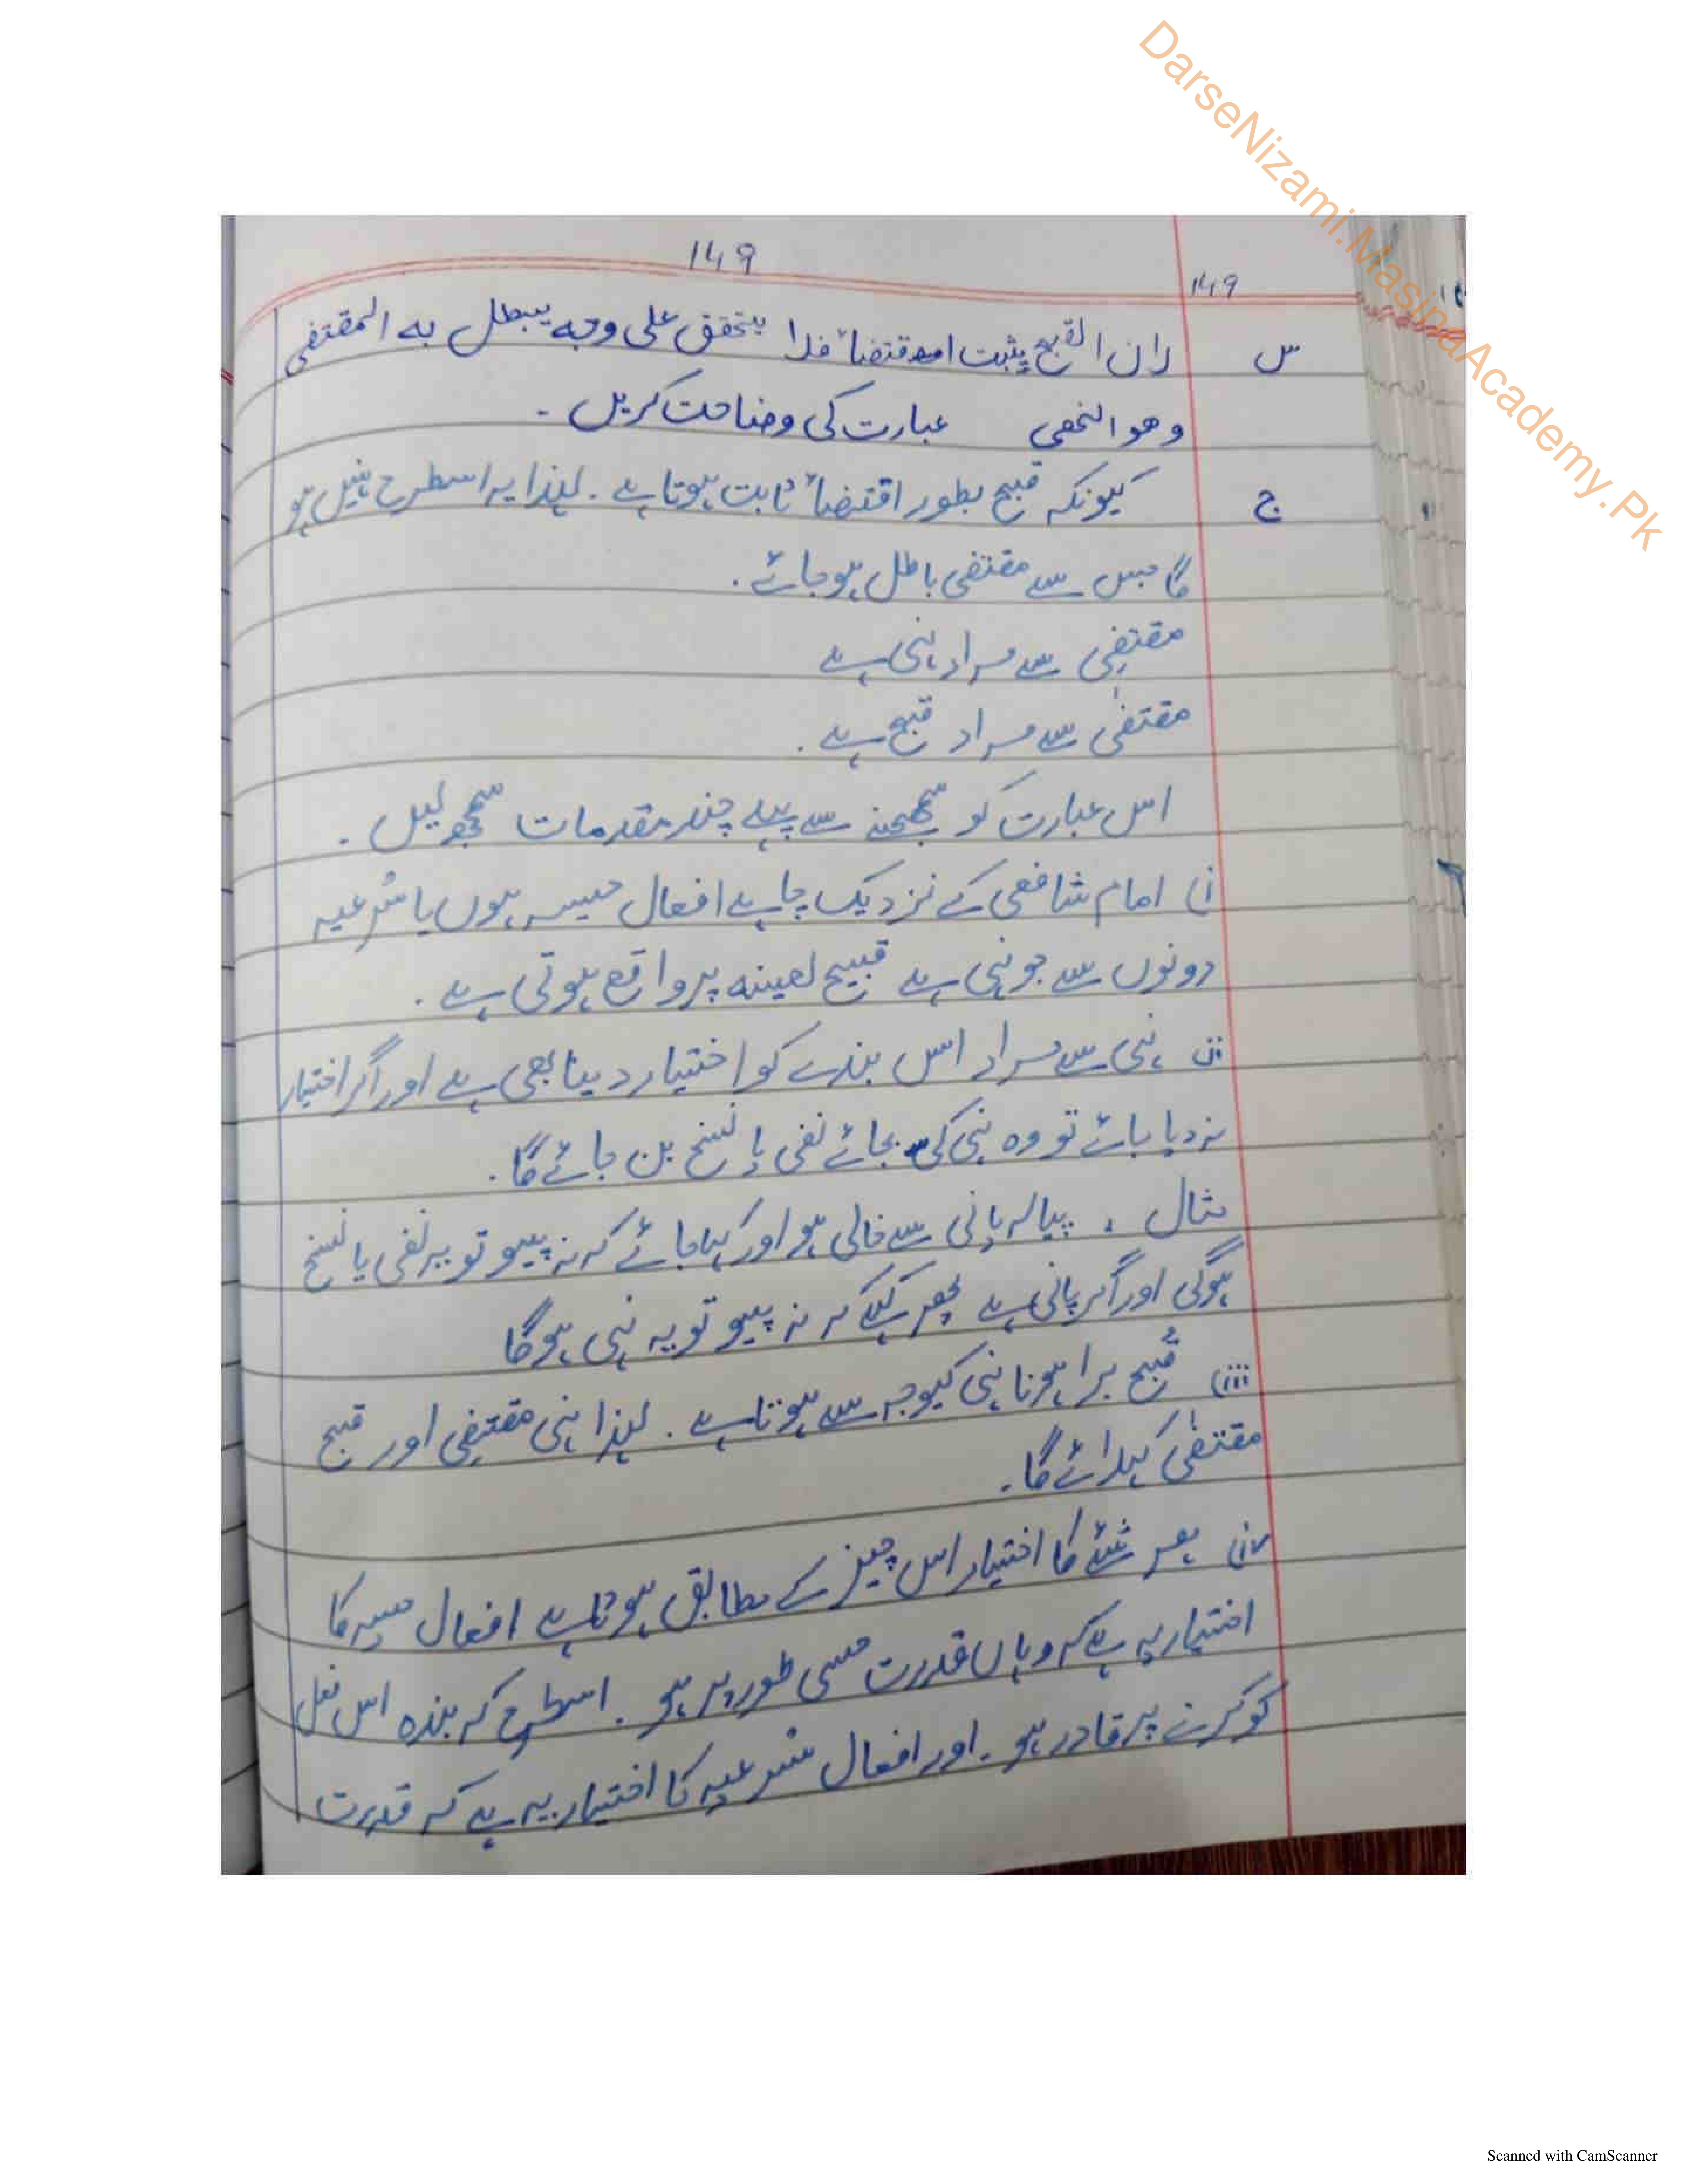 DarseNizami.MasjnaAcademy.Pk
149
149
س لان القبح یثبت اقتضاءً فلا یتحقق علی وجه یبطل به المقتضی
وهو النھی عبارت کی وضاحت کریں ۔
ج کیونکہ قبح بطور اقتضاءً ثابت ہوتا ہے ۔ لہٰذا یہ اسطرح نہیں ہو
گا جس سے مقتضی باطل ہوجائے ۔
مقتضِی سے مراد نہی ہے
مقتضٰی سے مراد قبح ہے ۔
اس عبارت کو سمجھنے سے پہلے چند مقدمات سمجھ لیں ۔
(i امام شافعی کے نزدیک چاہے افعال حسیہ ہوں یا شرعیہ
دونوں سے جو نہی ہے قبیح لعینہ پر واقع ہوتی ہے ۔
(ii نہی سے مراد اس بندے کو اختیار دینا بھی ہے اور اگر اختیار
نہ دیا جائے تو وہ نہی کی بجائے نفی یا نسخ بن جائے گا ۔
مثال ۔ پیالہ پانی سے خالی ہو اور کہا جائے کہ نہ پییو تو یہ نفی یا نسخ
ہوگی اور اگر پانی ہے پھر کہے کہ نہ پییو تو یہ نہی ہوگا
(iii قُبح برا ہونا نہی کیوجہ سے ہوتا ہے ۔ لہٰذا نہی مقتضِی اور قبح
مقتضٰی کہلائے گا ۔
(iv ہر شئے کا اختیار اس چیز کے مطابق ہوتا ہے افعال حسیہ کا
اختیار یہ ہے کہ وہاں قدرت حسی طور پر ہو ۔ اسطرح کہ بندہ اس فعل
کو کرنے پر قادر ہو ۔ اور افعال شرعیہ کا اختیار یہ ہے کہ قدرت
Scanned with CamScanner